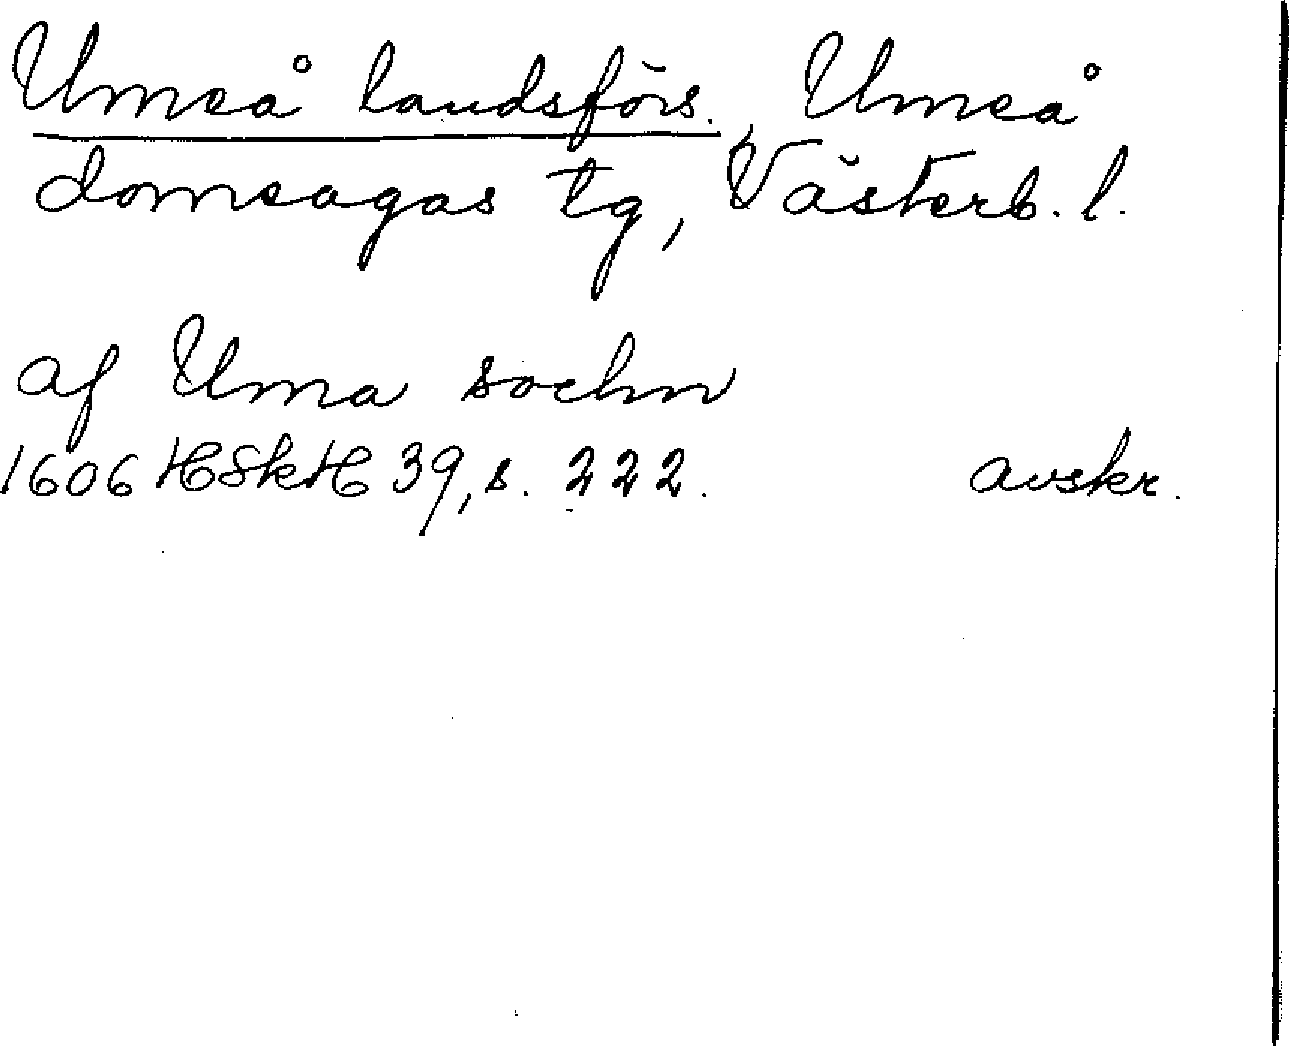 Umeå landsförs., Umeå
domsagas tg, Västerb. l.
af Uma sochn
1606 HSkH 39, s. 222. avskr.